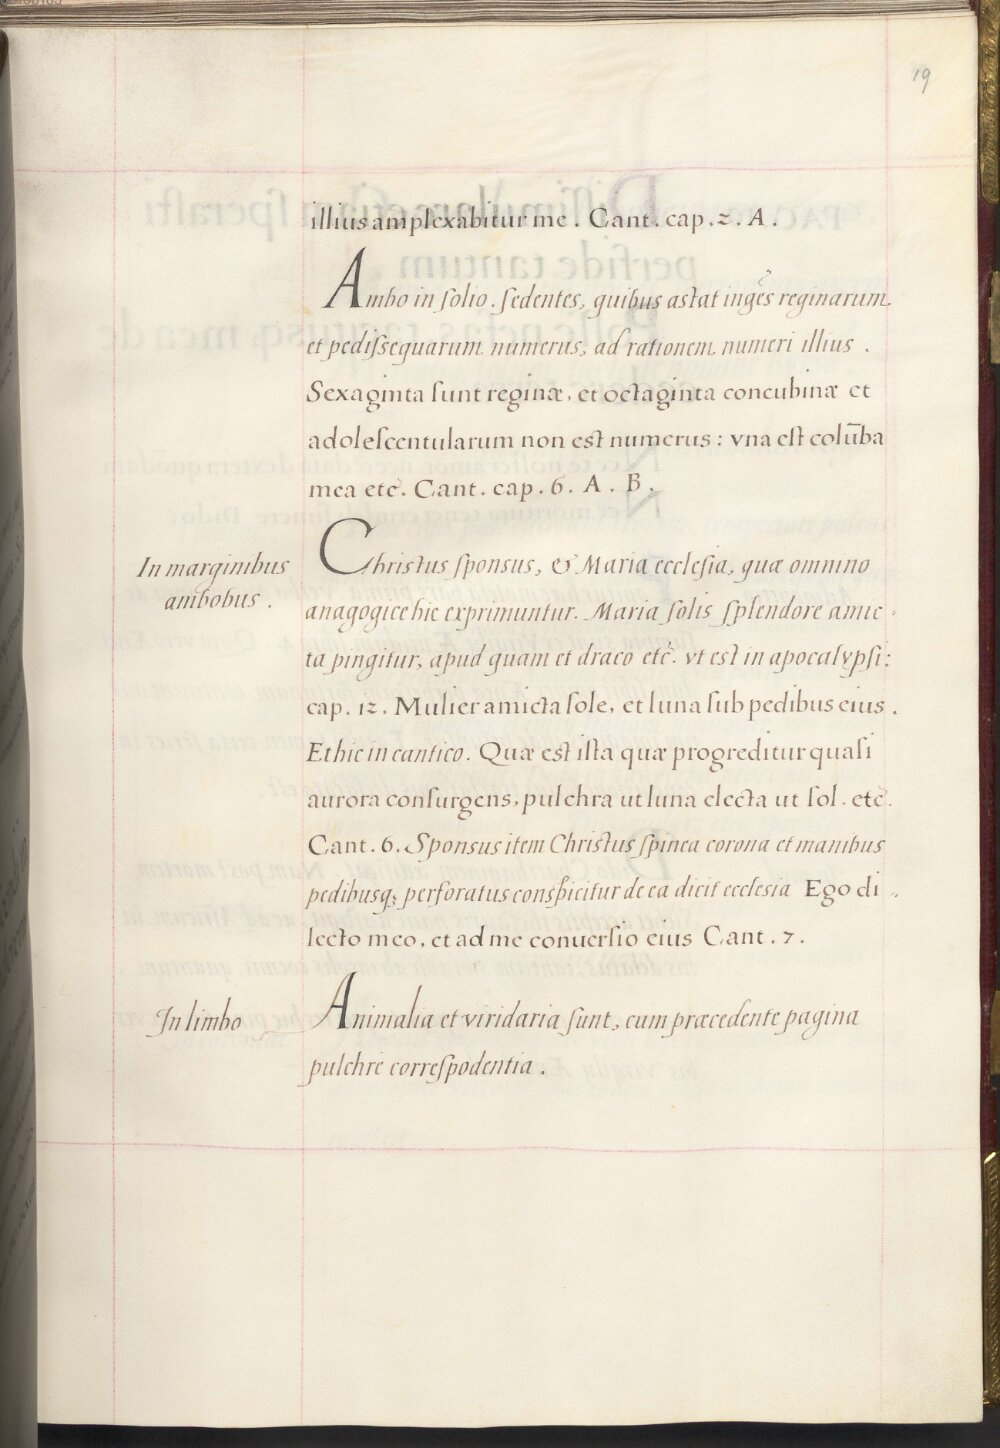 19
illius amplexabitur me. Cant. cap. 2. A.
Ambo in ſolio ſedentes, quibus astat ingẽs reginarum
et pediſſequarum numerus, ad rationem numeri illius.
Sexaginta ſunt reginæ, et octaginta concubinæ et
adoleſcentularum non est numerus: vna eſt colũba
mea etc̃. Cant. cap. 6. A. B.
In marginibus
ambobus.
Christus ſponsus, & Maria eccleſia, quæ omnino
anagogice hic exprimuntur. Maria ſolis ſplendore amic-
ta pingitur, apud quam et draco etc̃. vt est in apocalypſi:
cap. 12. Mulier amicta ſole, et luna ſub pedibus eius.
Et hic in cantico. Quæ est iſta quæ progreditur quaſi
aurora conſurgens, pulchra ut luna electa ut ſol. etc̃.
Cant. 6. Sponsus item Christus ſpinea corona et manibus
pedibusq; perforatus conspicitur de ea dicit ecclesia Ego di-
lecto meo, et ad me conuerſio eius Cant. 7.
In limbo
Animalia et viridaria ſunt, cum præcedente pagina
pulchre correſpodentia.